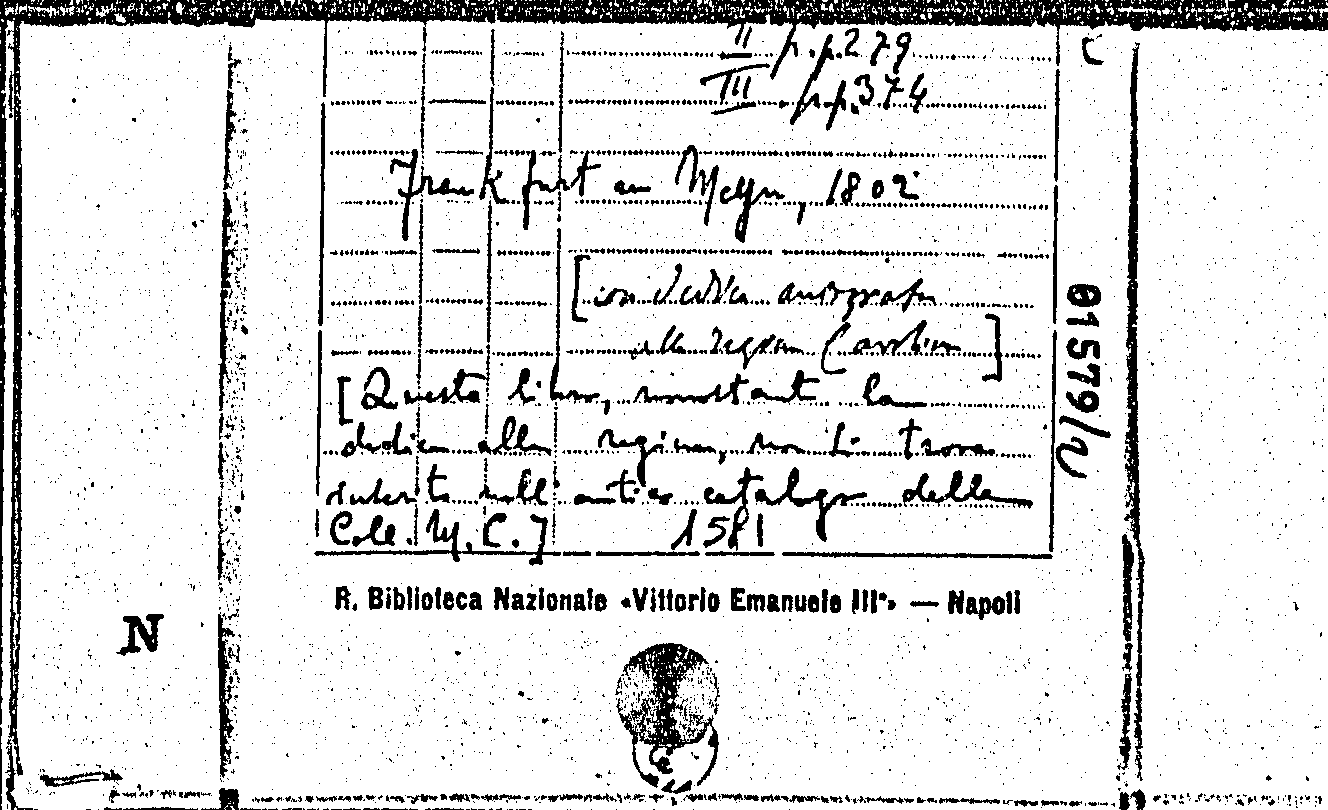 II p.p. 279
III p.p. 374
Frankfurt am Mayn, 1802
[con dedica autografa
alla regina Carolina]
[Questo libro, nonostante la
dedica alla regina, non si trova
inserito nell'antico catalogo della
Coll. M. C.] 1581
R. Biblioteca Nazionale «Vittorio Emanuele III°» — Napoli
N
C
01579/2